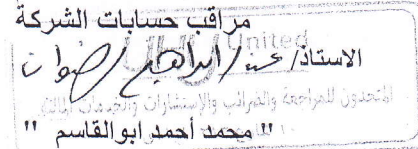 مراقب حسابات الشركة
United
الاستاذ/ محمد ابراهيم رضوان
المتحدون للمراجعة والضرائب والإستشارات والخدمات المالية
" محمد أحمد ابوالقاسم "